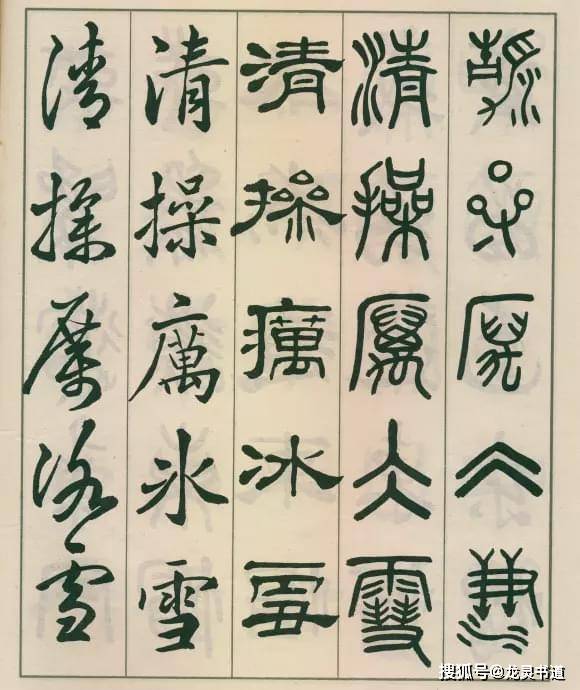 清操厲冰雪
清操厲冰雪
清操厲冰雪
清操厲冰雪
清操厲冰雪
搜狐号@龙灵书道